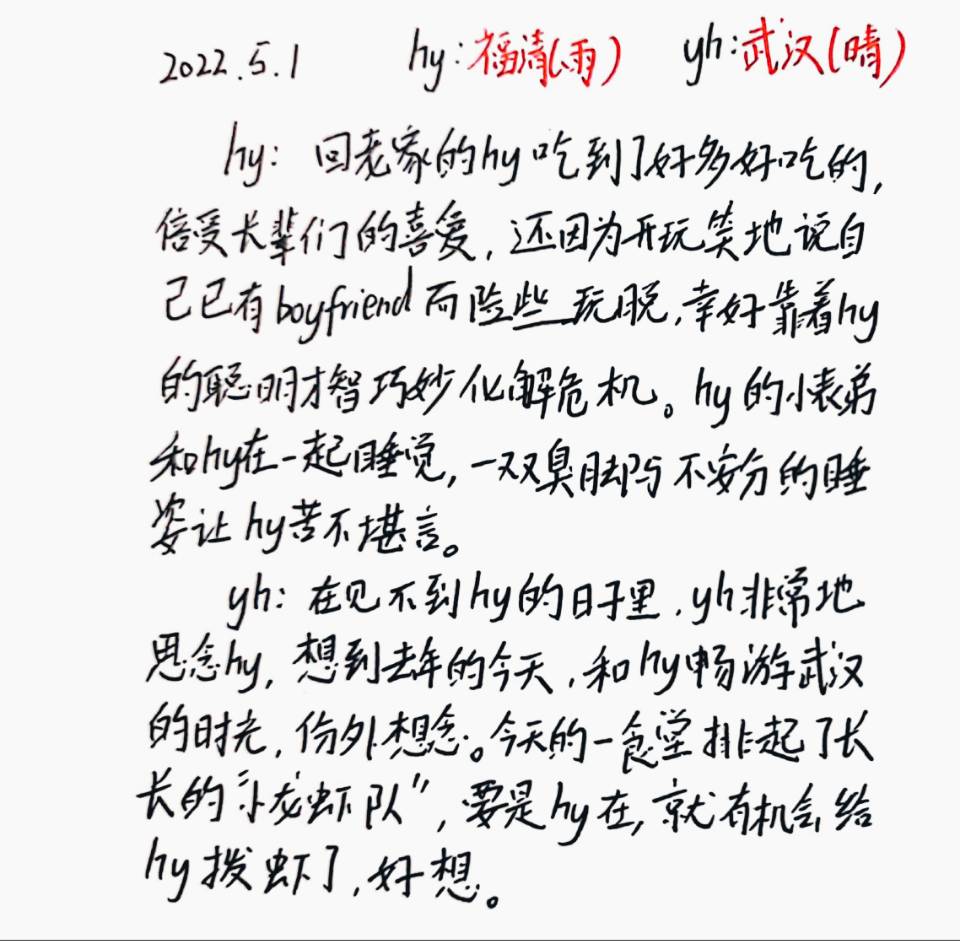 2022.5.1 hy:福清(雨) yh:武汉(晴)
hy: 回老家的hy吃到了好多好吃的,
倍受长辈们的喜爱,还因为开玩笑地说自
己已有boyfriend而险些玩脱,幸好靠着hy
的聪明才智巧妙化解危机。hy的小表弟
和hy在一起睡觉,一双臭脚与不安分的睡
姿让hy苦不堪言。
yh: 在见不到hy的日子里,yh非常地
思念hy,想到去年的今天,和hy畅游武汉
的时光,份外想念。今天的一食堂排起了长
长的“小龙虾队”,要是hy在,就有机会给
hy拨虾了,好想。